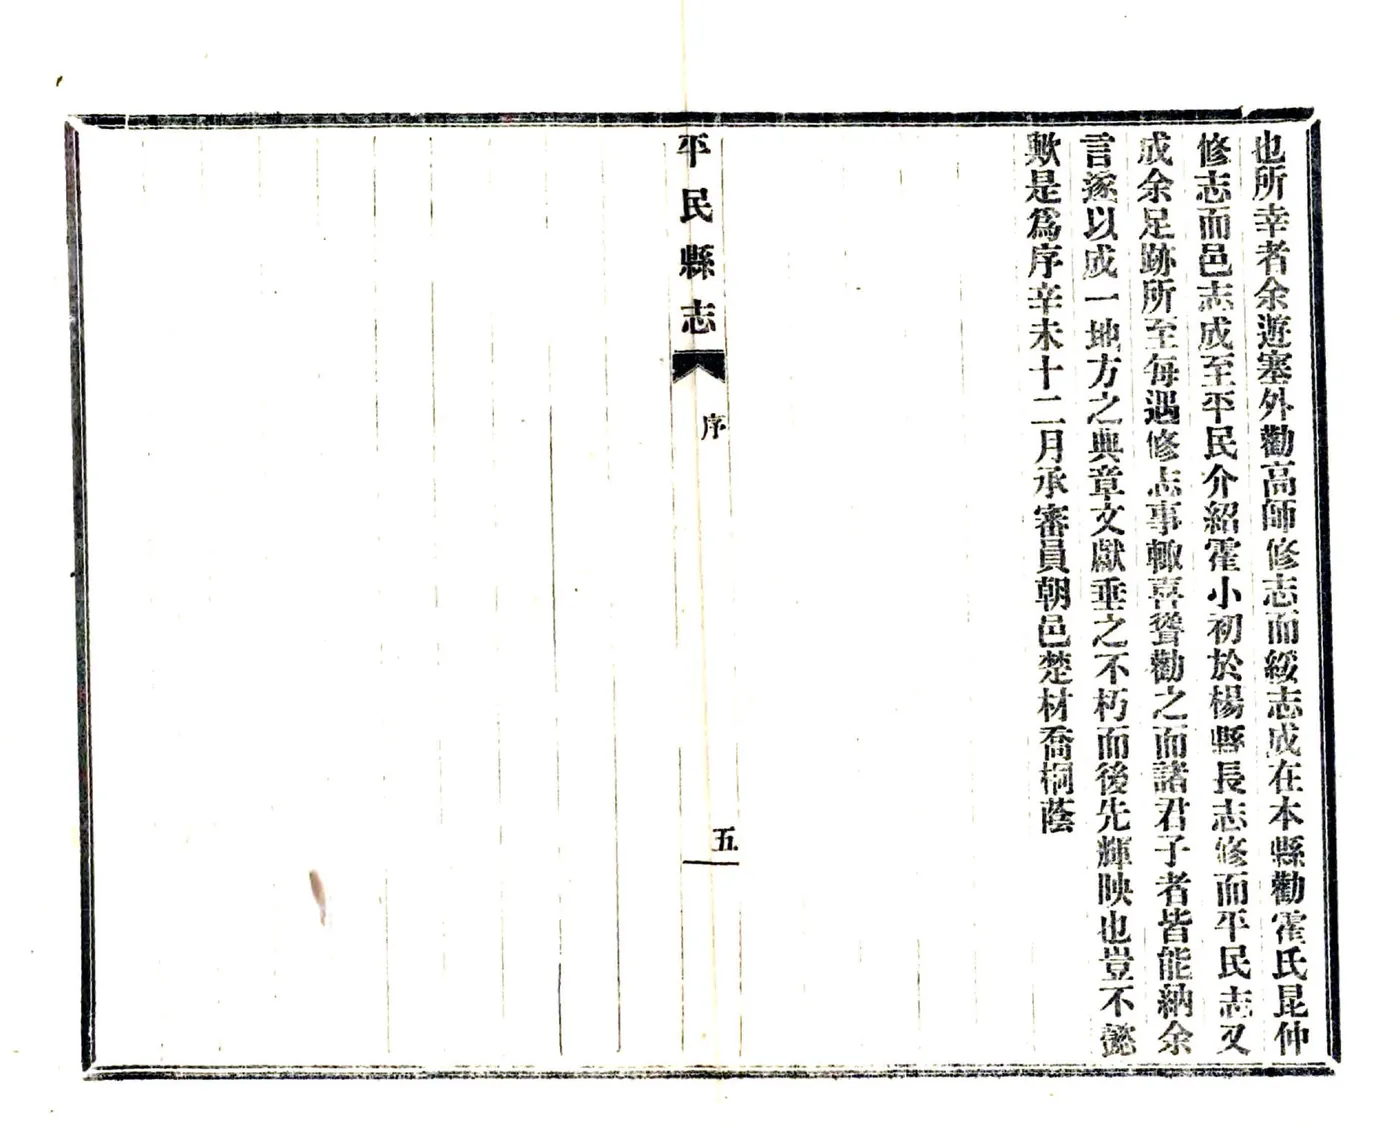 也所幸者余遊塞外勸高師修志而綏志成在本縣勸霍氏昆仲
修志而邑志成至平民介紹霍小初於楊縣長志修而平民志又
成余足跡所至每遇修志事輒喜聳勸之而諸君子者皆能納余
言遂以成一地方之典章文獻垂之不朽而後先輝映也豈不懿
歟是爲序辛未十二月承審員朝邑楚材喬桐蔭
平民縣志
序
五